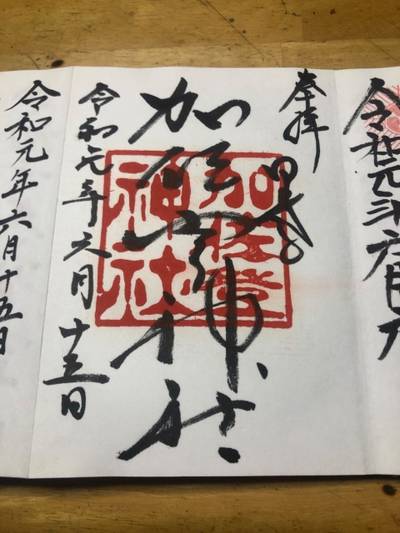 令和元年六月
奉拝
加佐登神社
加佐登
神社
令和元年六月十五日
令和元年六月十五日